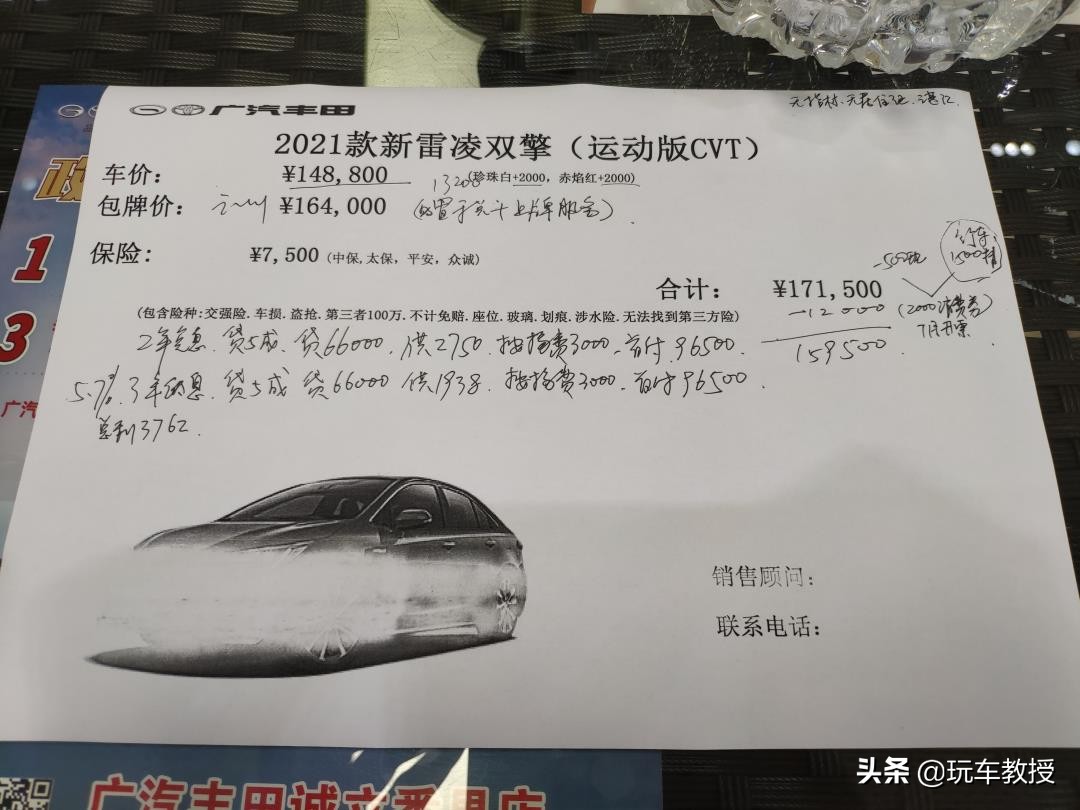 广汽丰田
无指标.无居住证.湛江.
2021款新雷凌双擎（运动版CVT）
车价： ¥148,800 （珍珠白+2000，赤焰红+2000）
包牌价： ¥164,000 （购置税+上牌服务）.
保险： ¥7,500（中保,太保，平安，众诚）
合计： ¥171,500
-12000
159500
(2000消费券)
7月开票
（包含险种：交强险.车损.盗抢.第三者100万.不计免赔.座位.玻璃.划痕.涉水险.无法找到第三方险）
2年免息.贷5成.贷66000.供2750.按揭费3000.首付96500.
5.7% 3年 贷5成 贷66000 供1938.按揭费3000.首付96500.
总利3762.
销售顾问：
联系电话：
1
3
广汽
广汽丰田诚立番禺店
头条 @玩车教授